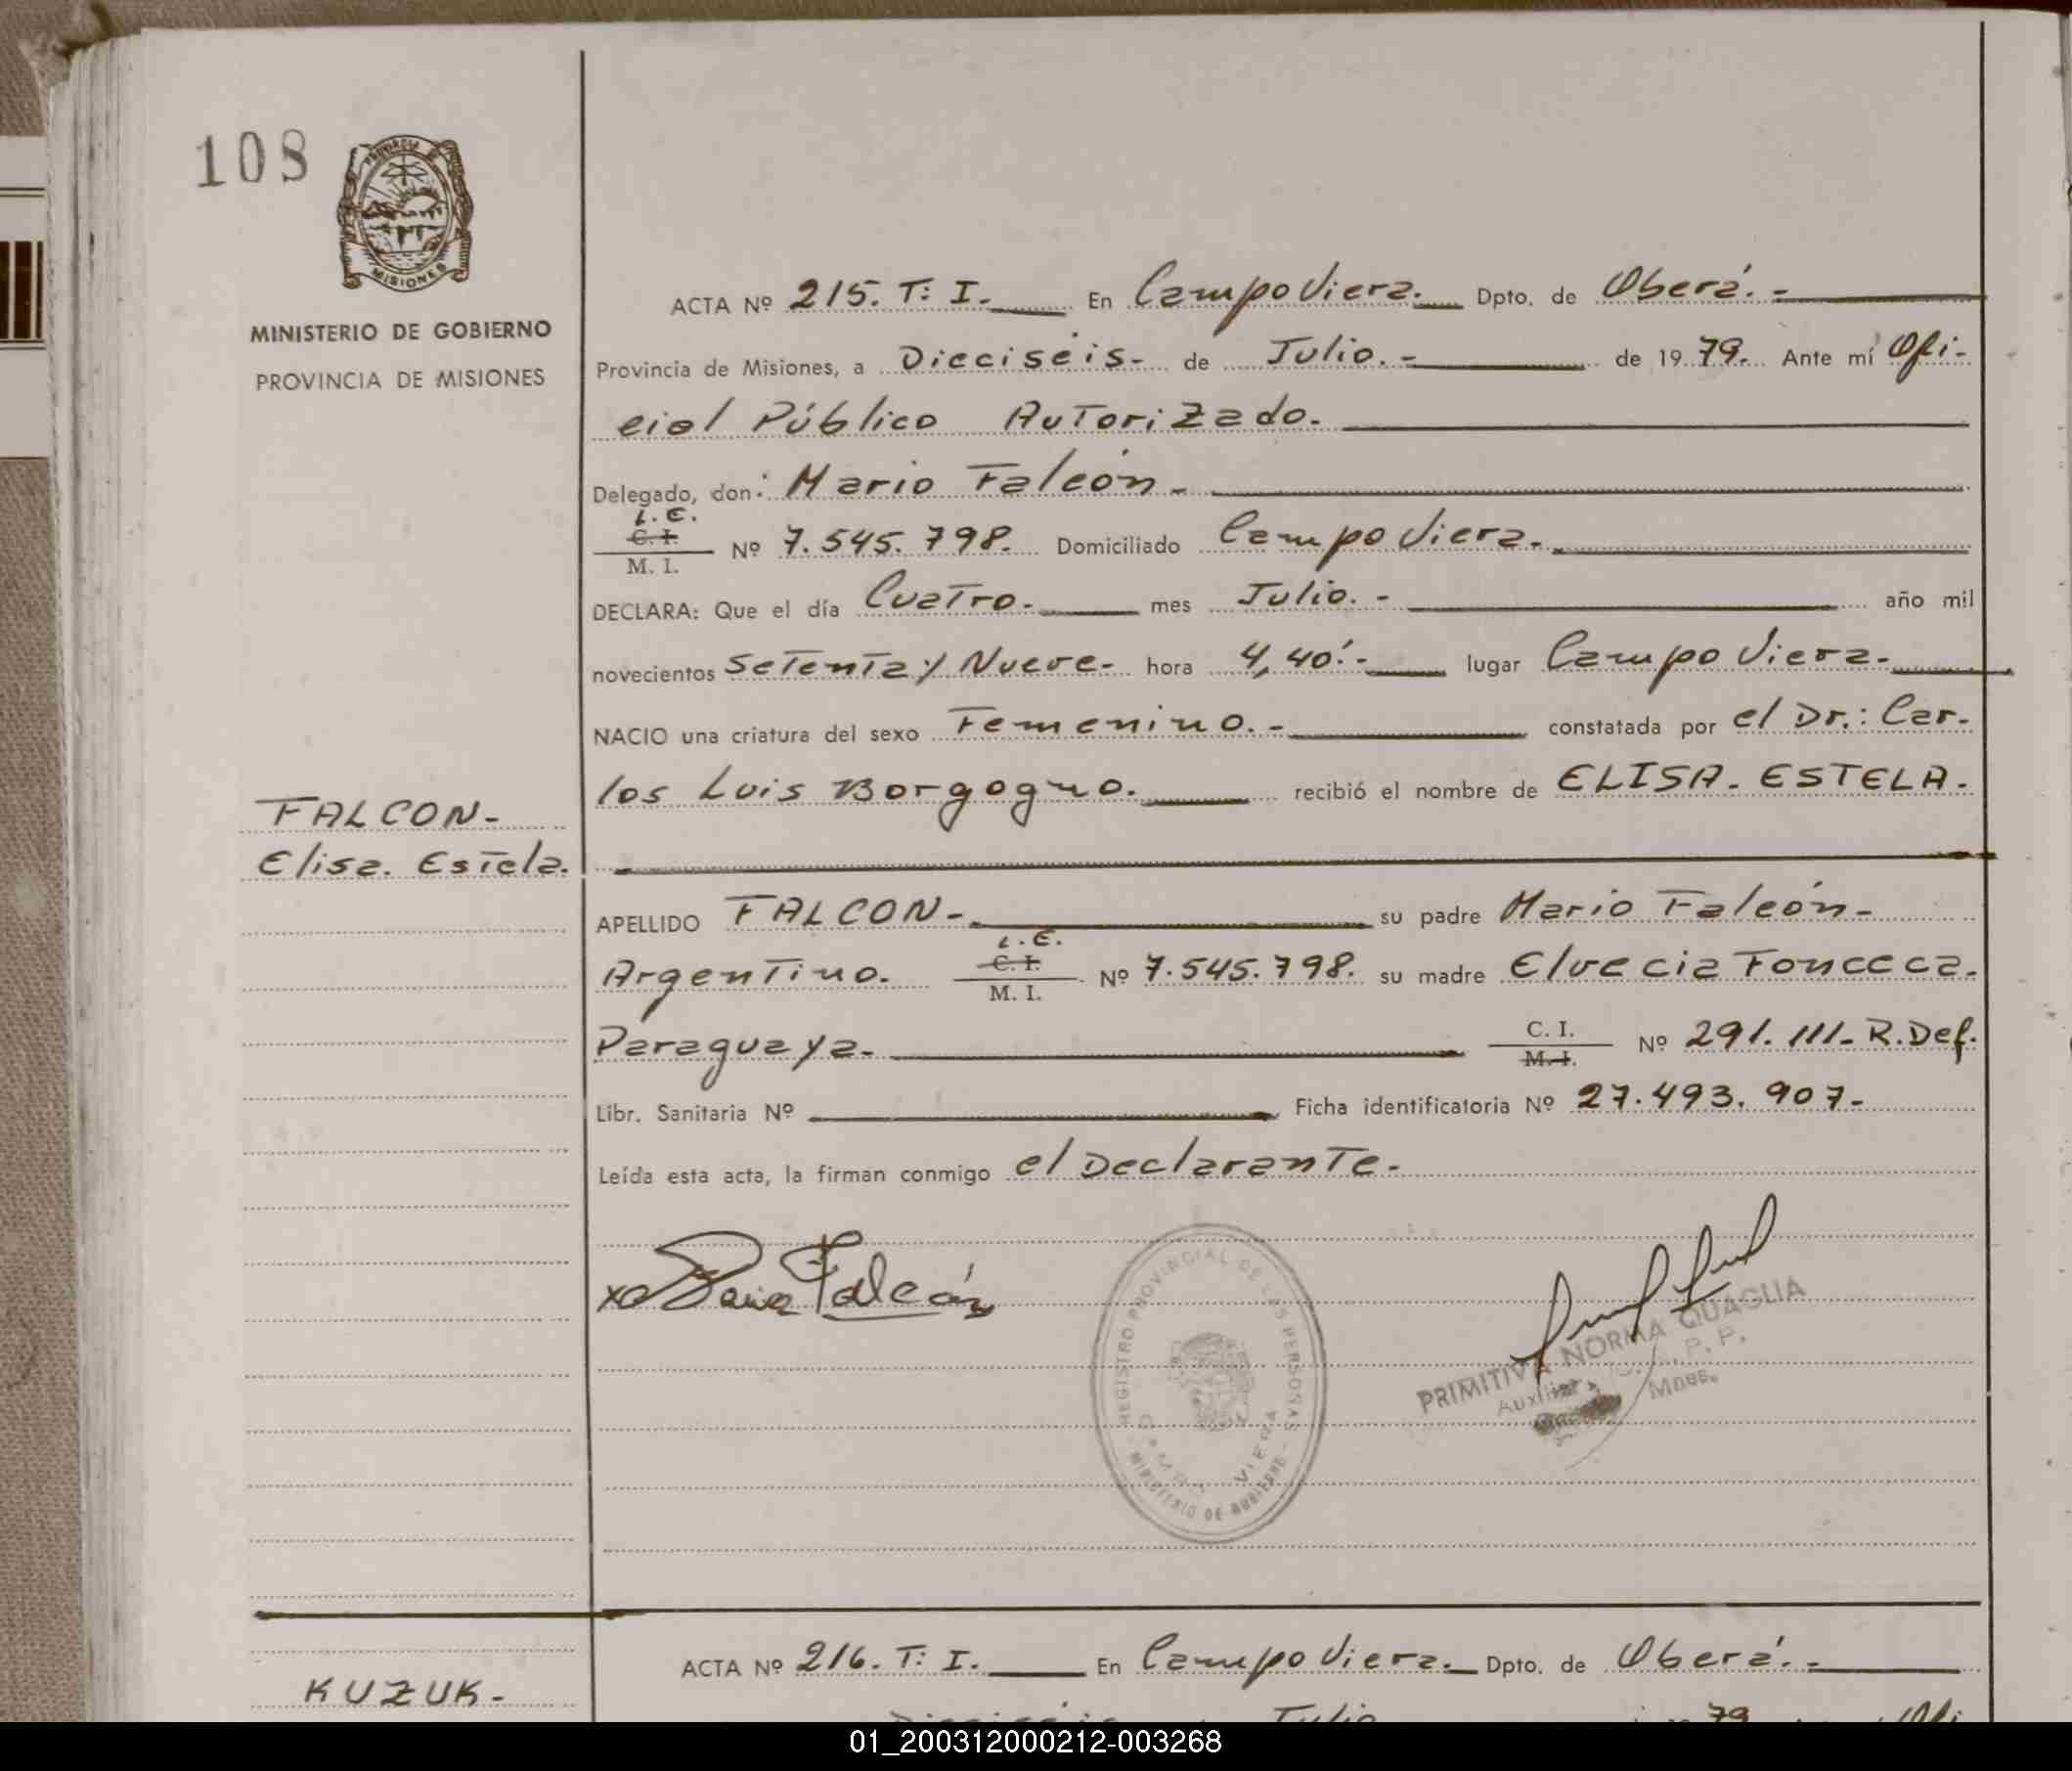 108
PROVINCIA DE
MISIONES
MINISTERIO DE GOBIERNO
PROVINCIA DE MISIONES
ACTA Nº 215. T: I. En Campo Viera. Dpto. de Oberá.-
Provincia de Misiones, a Dieciseis- de Julio.- de 1979. Ante mí Ofi-
cial Público Autorizado.
Delegado, don: Mario Falcón-
L.E.
C. I.
M. I. Nº 7.545.798. Domiciliado Campo Viera.
DECLARA: Que el día Cuatro. mes Julio.- año mil
novecientos Setenta y Nueve- hora 4,40'.- lugar Campo Viera.
NACIO una criatura del sexo Femenino.- constatada por el Dr.: Car-
los Luis Borgogno. recibió el nombre de ELISA. ESTELA.
FALCON-
Elisa. Estela.
APELLIDO FALCON- su padre Mario Falcón-
L.E.
C. I.
Argentino. M. I. Nº 7.545.798. su madre Elvecia Fonceca.
Paraguaya. C. I. M. I. Nº 291.111- R.Def.
Libr. Sanitaria Nº Ficha identificatoria Nº 27.493.907-
Leída esta acta, la firman conmigo el Declarante.
Falcón
REGISTRO PROVINCIAL DE LAS PERSONAS
CAMPO VIERA
MINISTERIO DE GOBIERNO
PRIMITIVA NORMA QUAGLIA
Auxiliar P. P.
Mnes.
ACTA Nº 216. T: I. En Campo Viera. Dpto. de Oberá.-
KUZUK-
Dieciseis Julio 79 Ofi
01_200312000212-003268